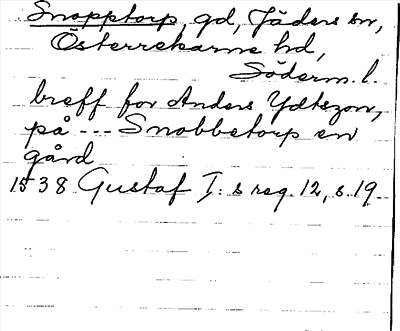 Snopptorp, gd, Jäders sn,
Österrekarne hd,
Söderm. l.
breff for Anders Ydtszon,
på --- Snobbetorp en
gård
1538 Gustaf I:s reg. 12, s. 19.